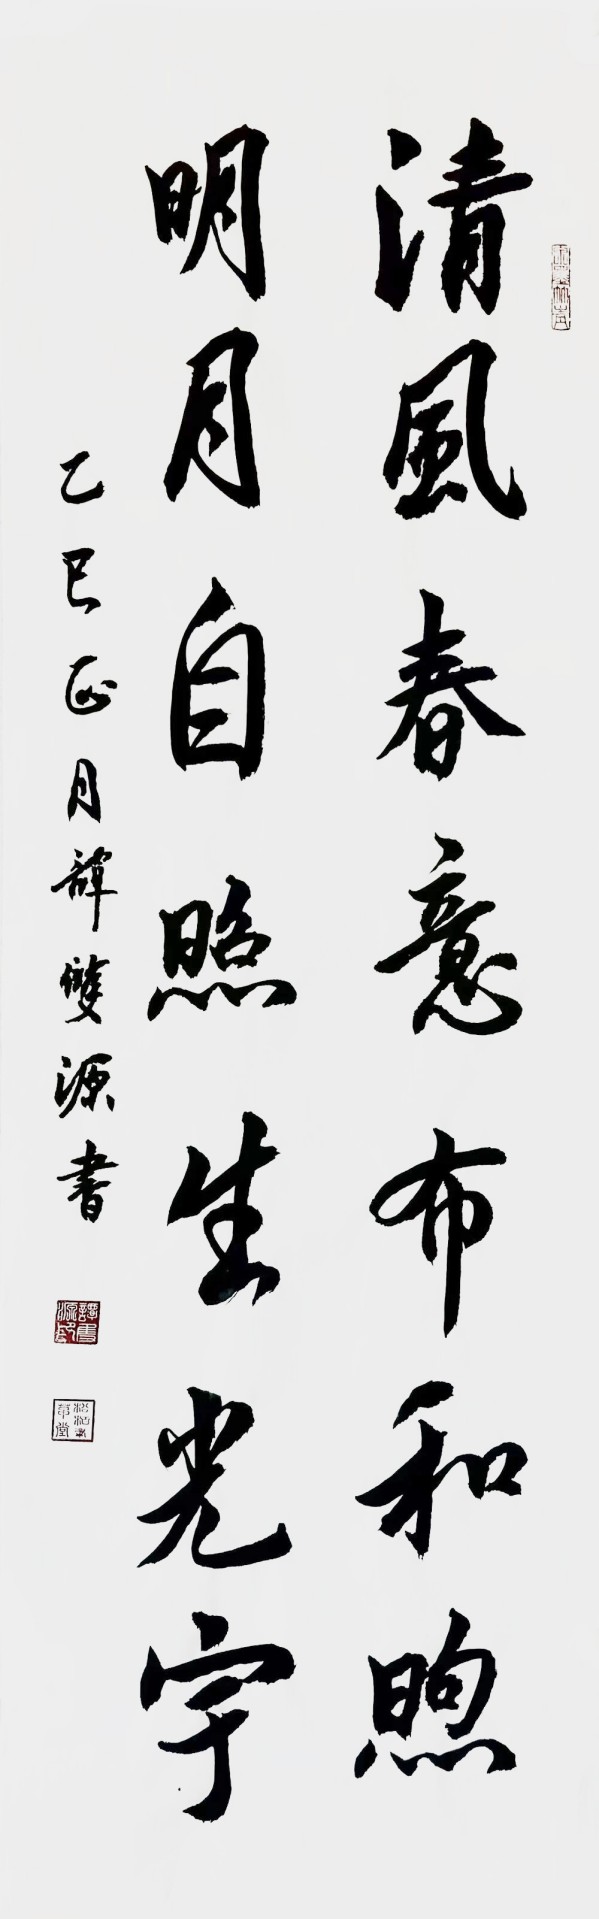 清風春意布和煦
明月自照生光宇
乙巳正月譚雙源書